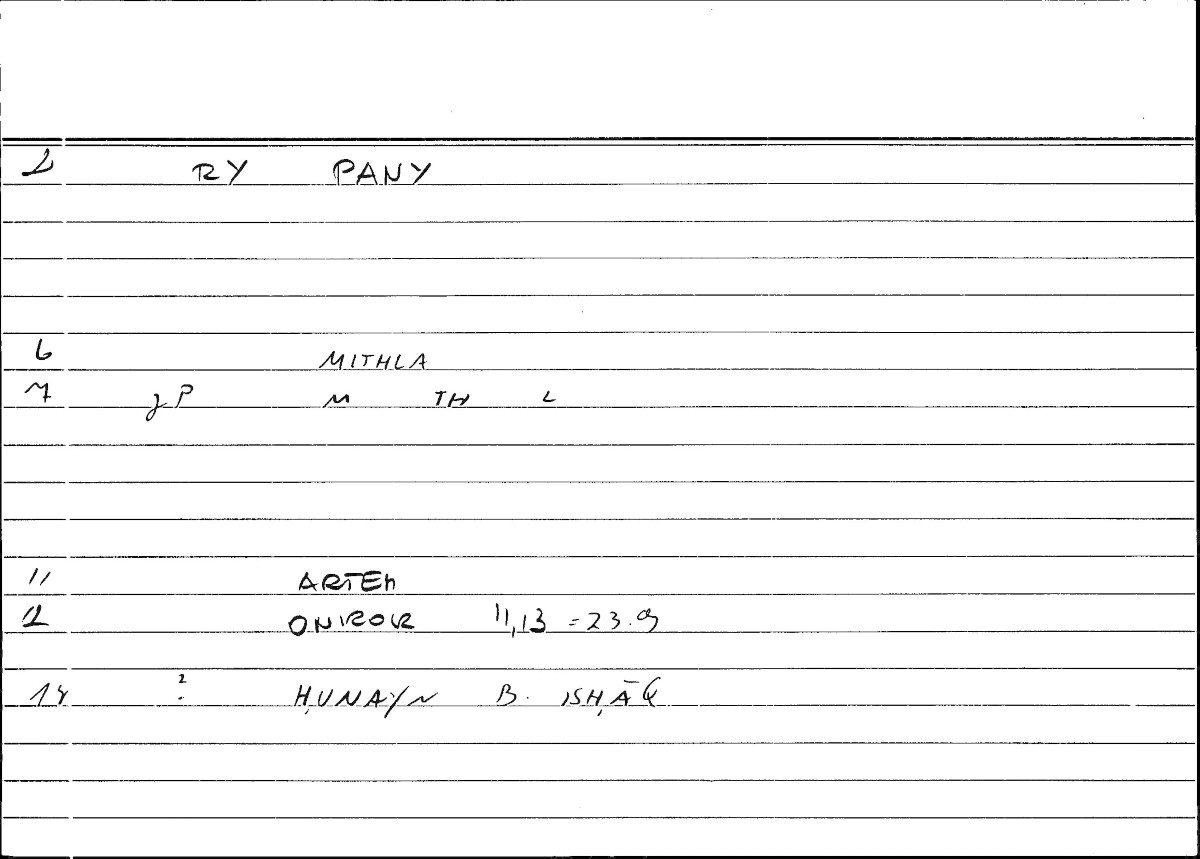 2 RY PANY
6 MITHLA
7 γP M TH L
11 ARTEM
12 ONIROK 11,13 =23.9
14 2 : ḤUNAYN B. ISḤĀQ